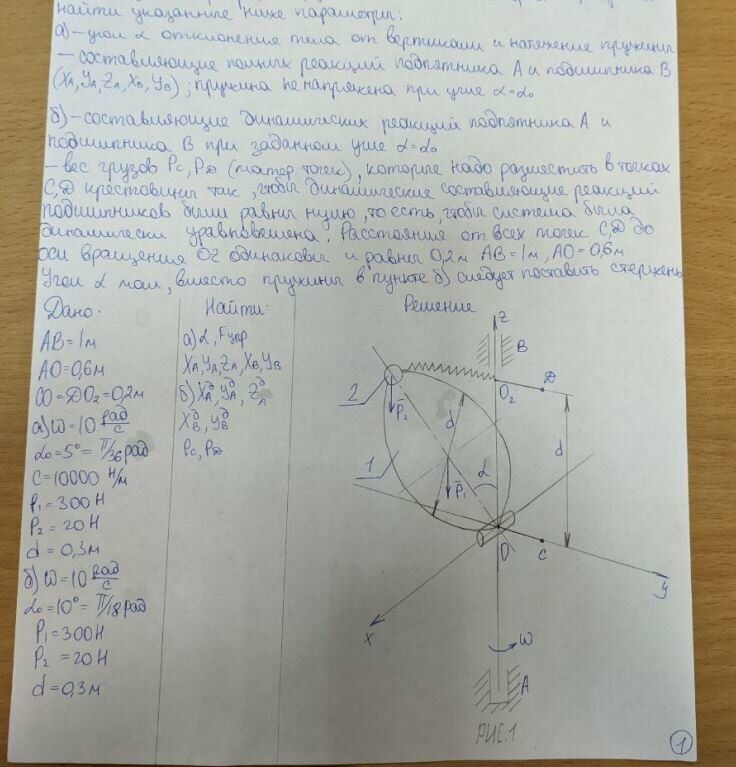 найти указанные ниже параметры:
а) – угол α отклонения тела от вертикали и натяжение пружины
– составляющие полных реакций подпятника А и подшипника В
(XA, YA, ZA, XB, YB); пружина не напряжена при угле α=α₀
б) – составляющие динамических реакций подпятника А и
подшипника В при заданном угле α=α₀
– вес грузов Pc, PД (матер. точек), которые надо разместить в точках
С, Д крестовины так, чтобы динамические составляющие реакций
подшипников были равны нулю, то есть чтобы система была
динамически уравновешена. Расстояния от всех точек С, Д до
оси вращения OZ одинаковы и равны 0,2м AB=1м, AO=0,6м
Угол α мал, вместо пружины в пункте б) следует поставить стержень
Дано:
AB=1м
AO=0,6м
CO=ДO₂=0,2м
а) ω=10 рад/с
α₀=5°=π/36 рад
C=10000 Н/м
P₁=300Н
P₂=20Н
d=0,3м
б) ω=10 рад/с
α₀=10°=π/18 рад
P₁=300Н
P₂=20Н
d=0,3м
Найти:
а) α, Fупр
XA, YA, ZA, XB, YB
б) XAд, YAд, ZAд
XBд, YBд
Pc, PД
Решение
z
B
2
O₂
Д
P₂
d
d
1
P₁
α
O
C
y
x
ω
A
РИС.1
1